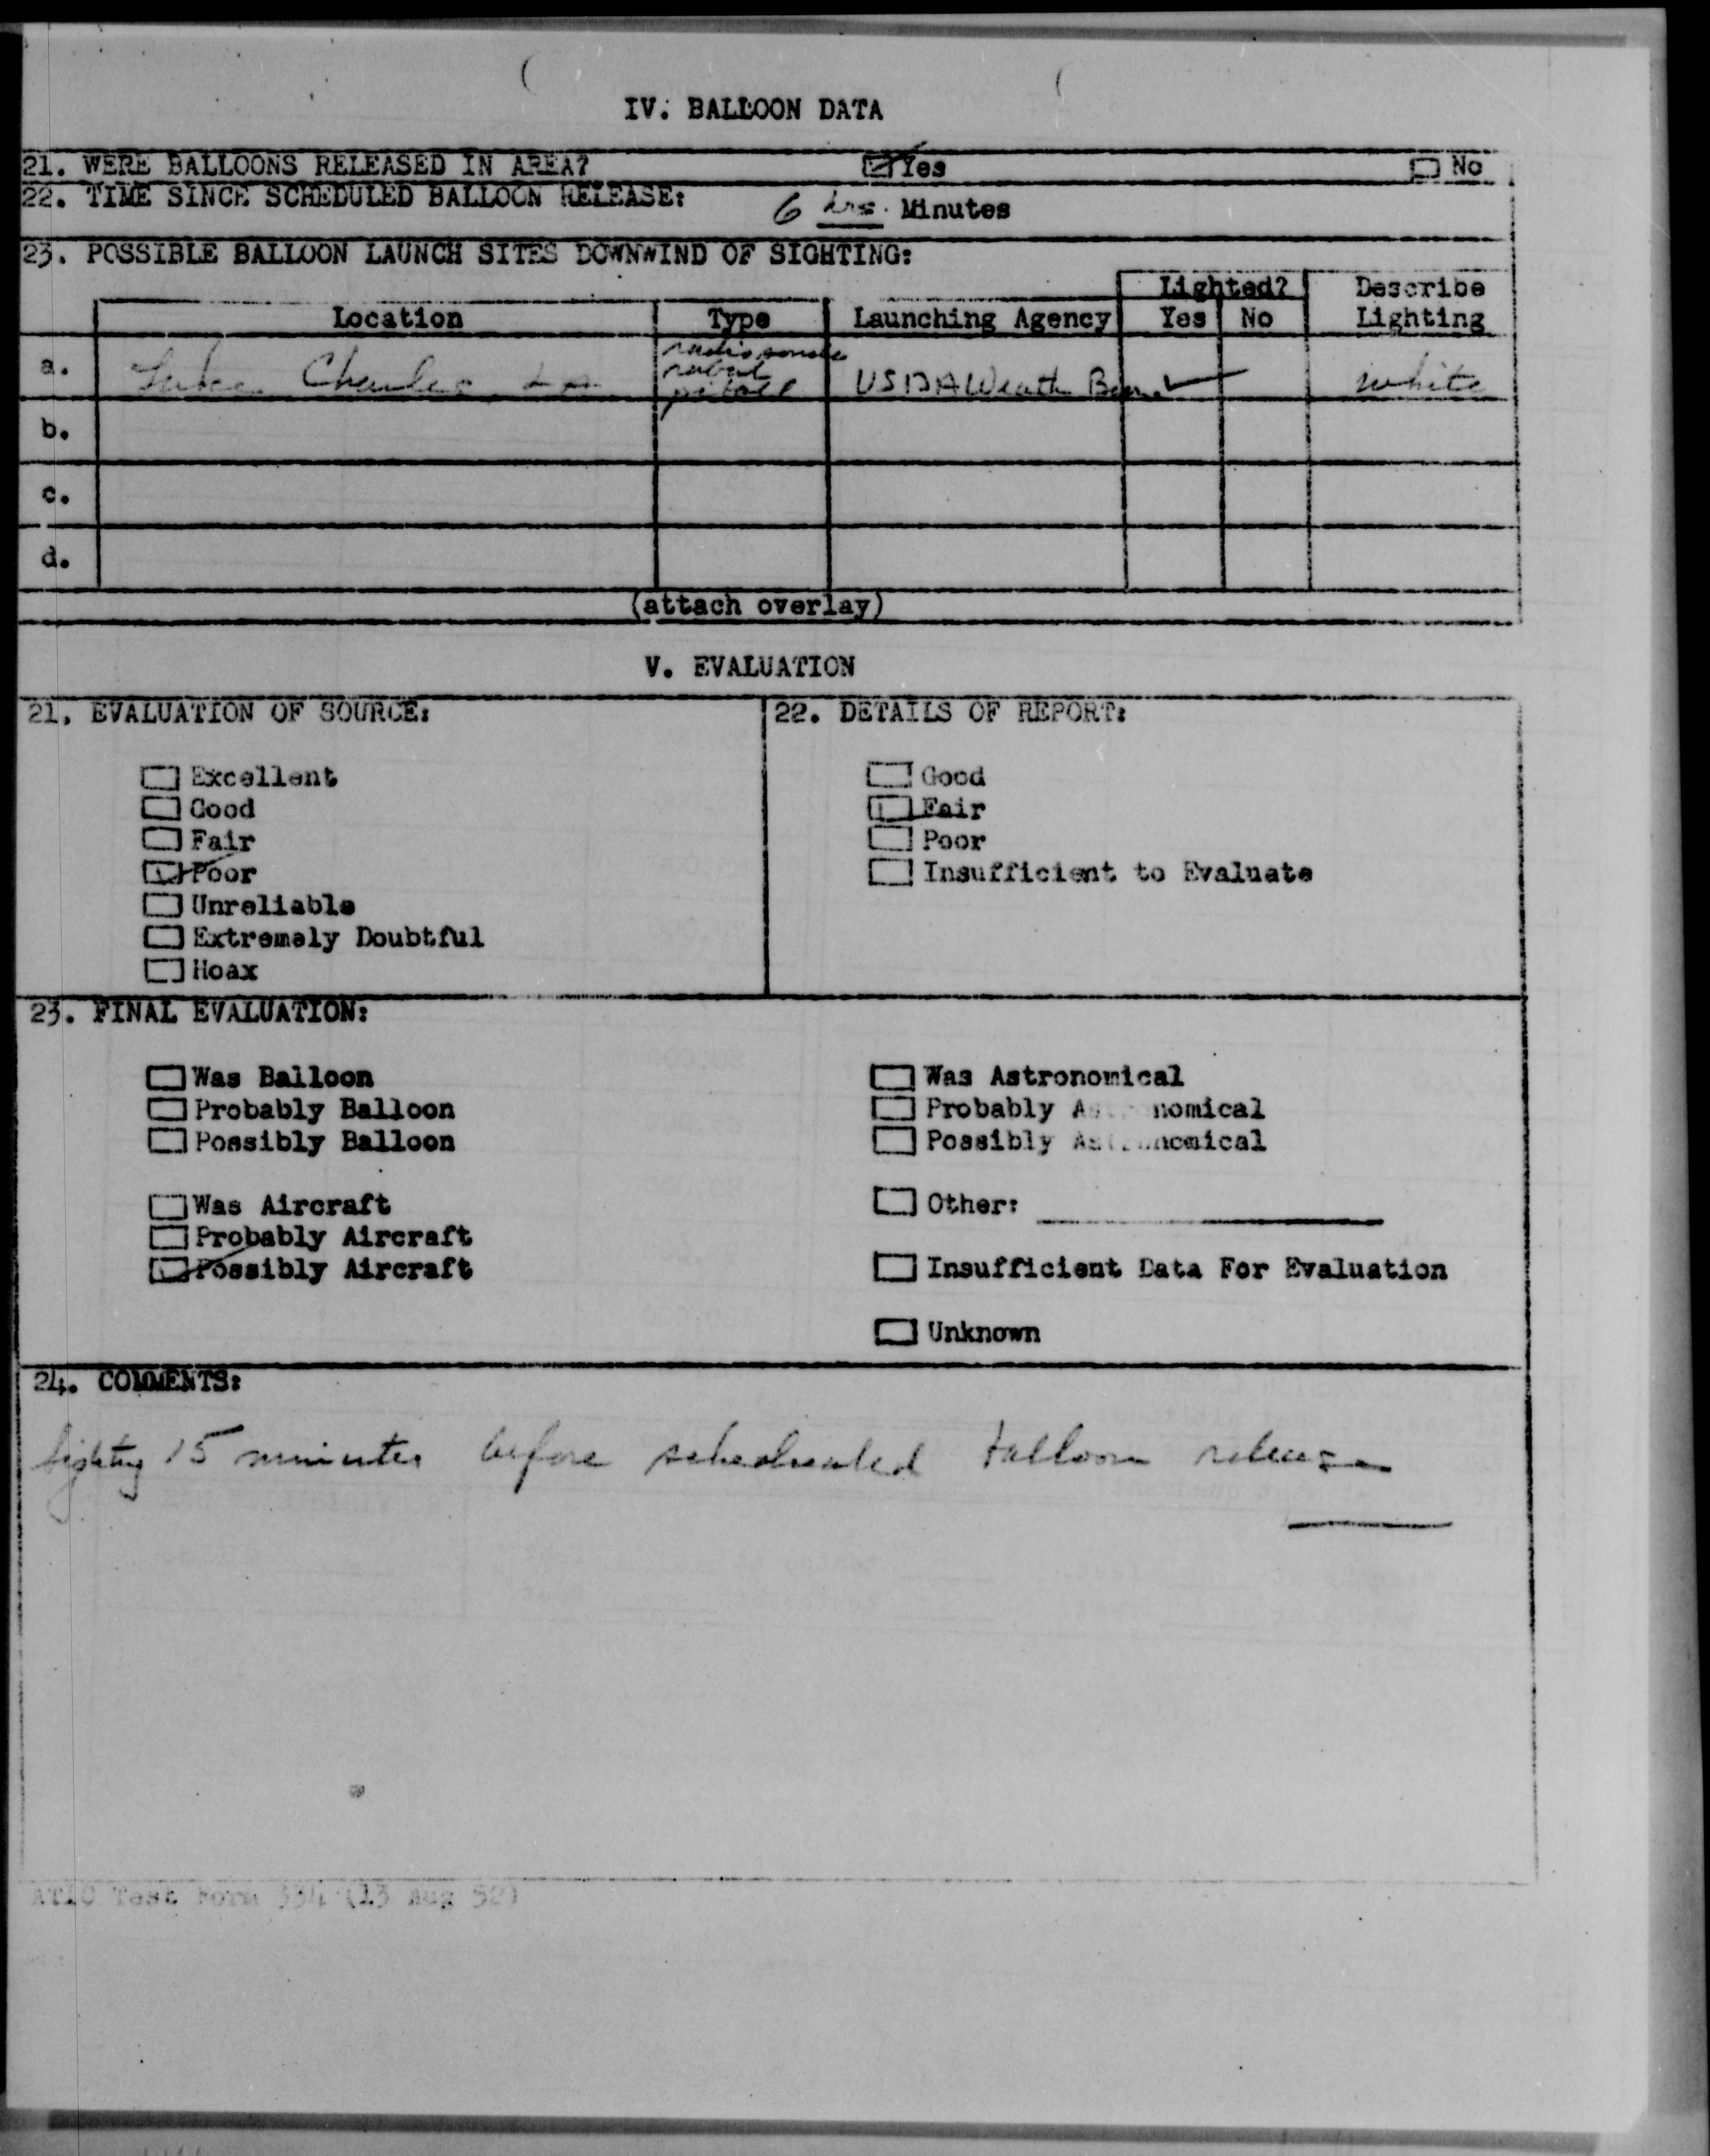 IV. BALLOON DATA
21. WERE BALLOONS RELEASED IN AREA? Yes No
22. TIME SINCE SCHEDULED BALLOON RELEASE: 6 hrs. Minutes
23. POSSIBLE BALLOON LAUNCH SITES DOWNWIND OF SIGHTING:
Lighted? Describe
Location Type Launching Agency Yes No Lighting
radiosonde
a. Lake Charles, La rabal USDA Weath Bur. white
pibal
b.
c.
d.
(attach overlay)
V. EVALUATION
21. EVALUATION OF SOURCE: 22. DETAILS OF REPORT:
Excellent Good
Good Fair
Fair Poor
Poor Insufficient to Evaluate
Unreliable
Extremely Doubtful
Hoax
23. FINAL EVALUATION:
Was Balloon Was Astronomical
Probably Balloon Probably Astronomical
Possibly Balloon Possibly Astronomical
Was Aircraft Other:
Probably Aircraft
Possibly Aircraft Insufficient Data For Evaluation
Unknown
24. COMMENTS:
Sighting 15 minutes before scheduled balloon release
ATIC Test Form 334 (13 Aug 52)